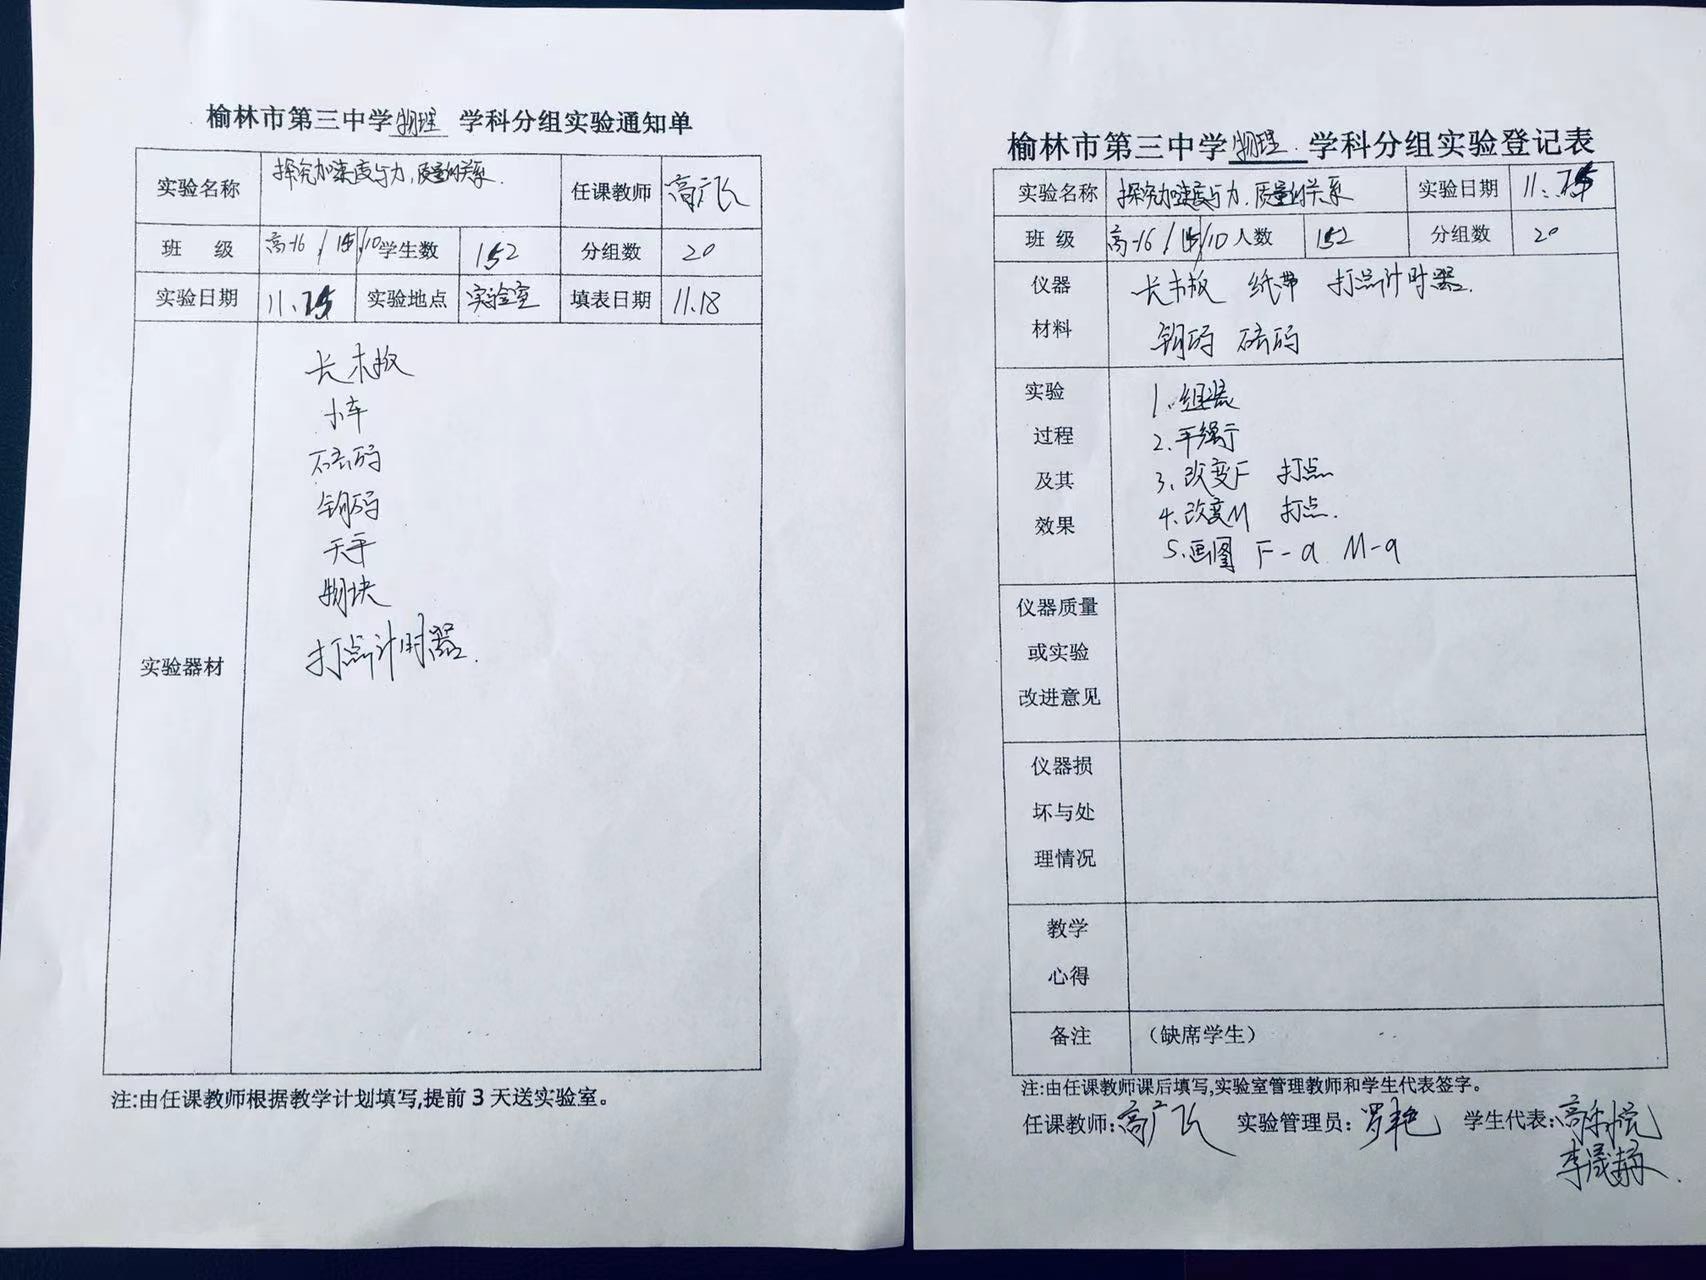 榆林市第三中学物理 学科分组实验通知单
实验名称 探究加速度与力,质量的关系. 任课教师 高广飞
班 级 高一16/15/10 学生数 152 分组数 20
实验日期 11. 实验地点 实验室 填表日期 11.18
实验器材
长木板
小车
砝码
钩码
天平
物块
打点计时器.
注:由任课教师根据教学计划填写,提前3天送实验室。
榆林市第三中学物理. 学科分组实验登记表
实验名称 探究加速度与力.质量的关系 实验日期 11.
班 级 高一16/15/10 人数 152 分组数 20
仪器
材料
长木板 纸带 打点计时器.
钩码 砝码
实验
过程
及其
效果
1、组装
2.平衡f
3、改变F 打点
4.改变M 打点.
5.画图 F-a M-a
仪器质量
或实验
改进意见
仪器损
坏与处
理情况
教学
心得
备注 (缺席学生)
注:由任课教师课后填写,实验室管理教师和学生代表签字。
任课教师:高广飞 实验管理员:罗艳 学生代表:高
李晟